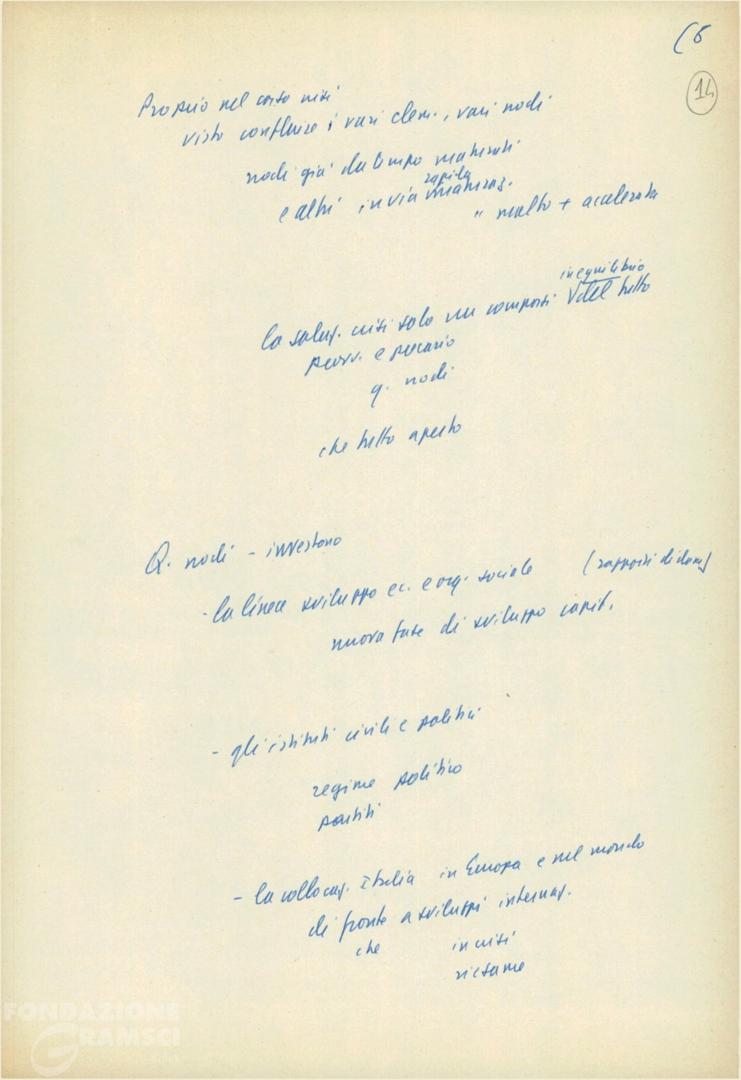 (6
14
Proprio nel corso crisi
visto confluire i vari elem., vari nodi
nodi già da tempo maturati
rapida
e altri in via maturaz.
" molto + accelerata
in equilibrio
la soluz. crisi solo un compom. V del tutto
provv. e precario
q. nodi
che tutto aperto
Q. nodi - investono
- la linea sviluppo ec. e org. sociale (rapporti di class)
nuova fase di sviluppo capit.
- gli istituti civili e politici
regime politico
partiti
- la collocaz. Italia in Europa e nel mondo
di fronte a sviluppi internaz.
che in crisi
riesame
FONDAZIONE
GRAMSCI